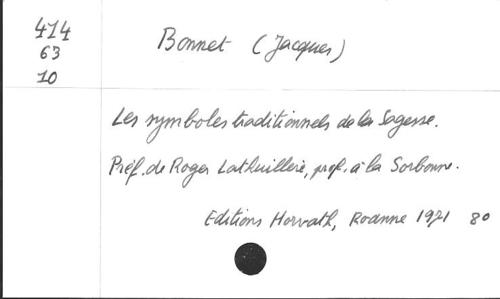 414
63
10
Bonnet (Jacques)
Les symboles traditionnels de la Sagesse.
Préf. de Roger Lathuillère, prof. à la Sorbonne.
Editions Horvath, Roanne 1971 80